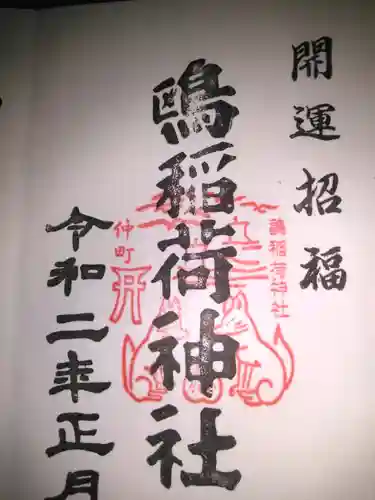 開運招福
鴎稲荷神社
令和二年正月
仲町
稲荷神社